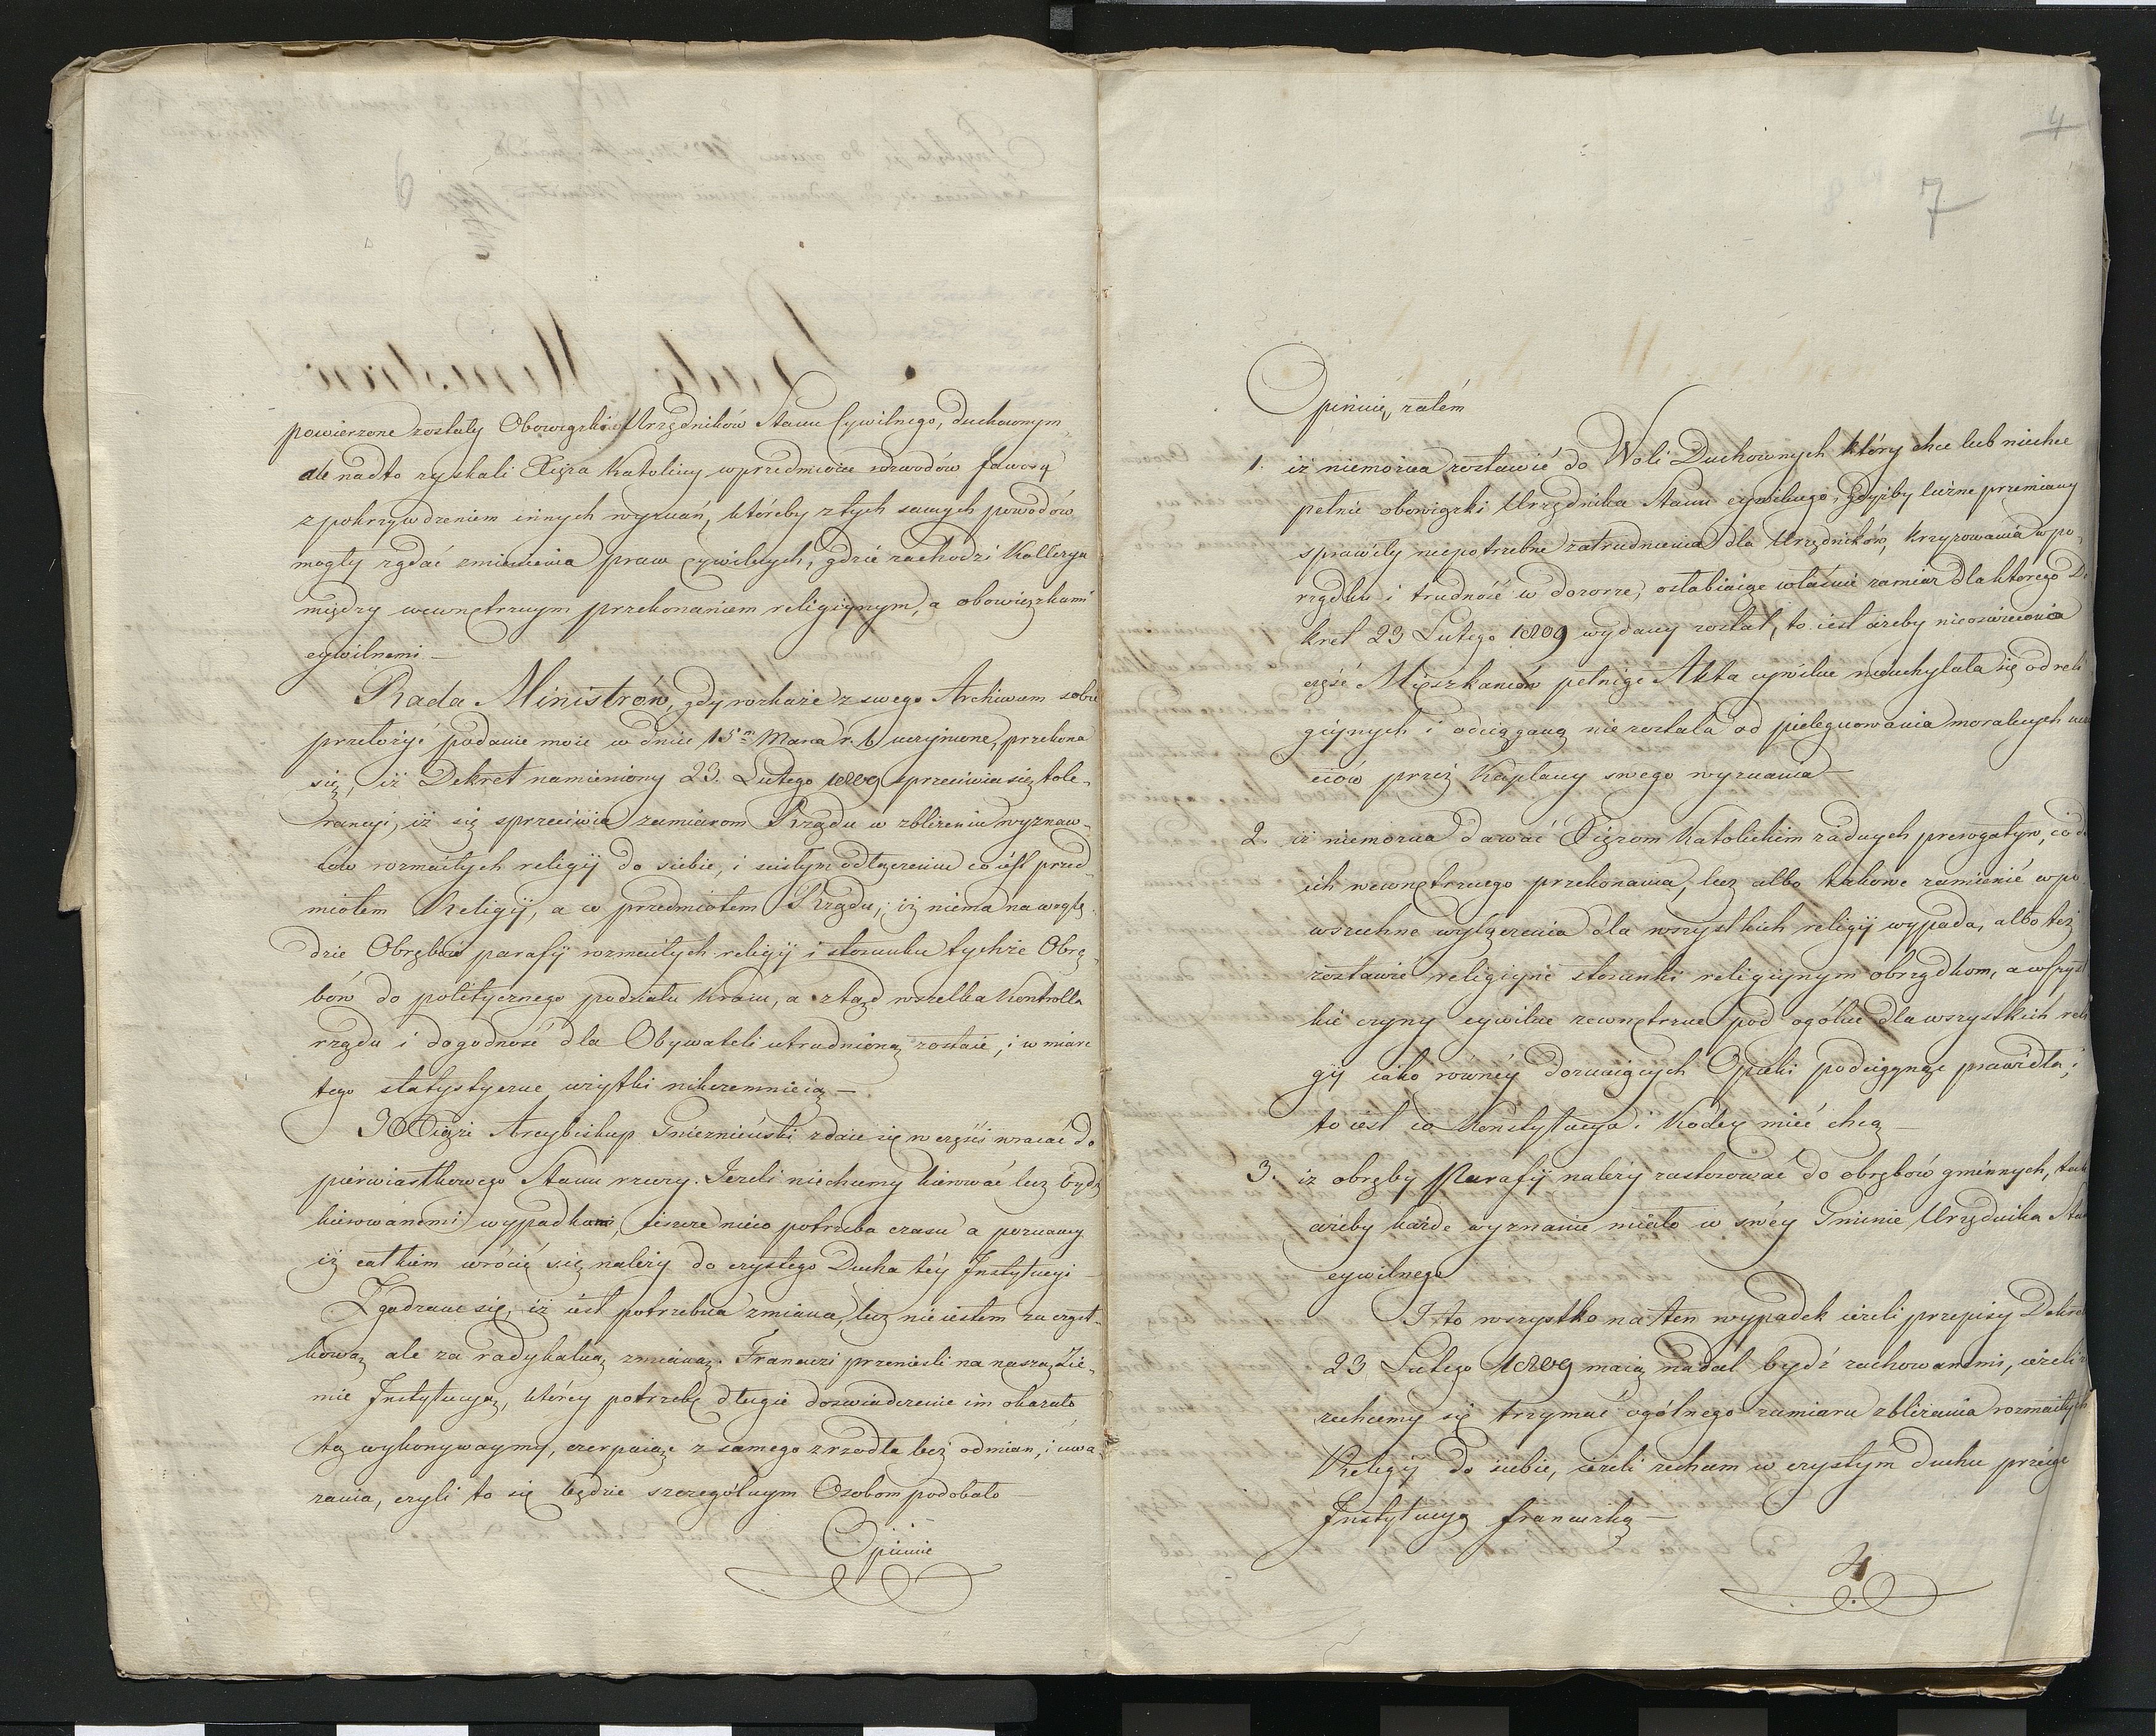 6
powierzone zostały Obowiązki Urzędników Stanu Cywilnego, duchownym,
ale nadto zyskali Xięża Katoliccy w przedmiocie rozwodów fawory
z pokrzywdzeniem innych wyznań, któreby z tych samych powodów
mogły żądać zmienienia praw cywilnych, gdzie zachodzi Kollizya
między wewnętrznym przekonaniem religiynym, a obowiązkami
cywilnemi –
Rada Ministrów, gdy rozkaże z swego Archiwum sobie
przełożyć podanie moie w dniu 15m Marca r. b. uczynione, przekona
się, iż Dekret namieniony 23. Lutego 1809 sprzeciwia się tole-
rancyi, iż się sprzeciwia zamiarom Rządu w zbliżeniu wyznaw-
ców rozmaitych religij do siebie, i ścisłym odłączeniu co iest przed-
miotem Religij, a co przedmiotem Rządu; iż niema na wzglę-
dzie Obrębów parafij rozmaitych religij i stosunku tychże Obrę-
bów do politycznego podziału Kraiu, a ztąd wszelka Kontrolla
rządu i dogodność dla Obywateli utrudnioną zostaie, i w miarę
tego statystyczne użytki nikczemnieią –
JO Xiąże Arcybiskup Gnieznieński zdaie się w części wracać do
pierwiastkowego Stanu rzeczy. Jeżeli niechcemy kierować lecz bydź
kierowanemi wypadkami, ieszcze nieco potrzeba czasu a poznamy
iż całkiem wrócić się należy do czystego Ducha téy Instytucyi –
Zgadzam się, iż iest potrzebna zmiana, lecz nie iestem za cząst-
kową ale za radykalną zmianą. Francuzi przenieśli na naszą Zie-
mię Instytucyą, któréy potrzebę długie doswiadczenie im okazało
tę wykonywaymy, czerpaiąc z samego zrzodła bez odmian, i uwa-
żania, czyli to się będzie szczególnym Osobom podobało
Opiniię
4
7
Opiniię, zatém
1. iż niemożna zostawić do Woli Duchownych który chce lub niechce
pełnić obowiązki Urzędnika Stanu cywilnego, gdyżby liczne przemiany
sprawiły niepotrzebne zatrudnienia dla Urzędników, krzyżowania w po-
rządku i trudność w dozorze, osłabiaiąc właśnie zamiar dla którego De
kret 23 Lutego 1809 wydany został, to iest ażeby nieoświecona
część Mieszkańców pełniąc Akta cywilne nieuchylała się od reli
giynych i odciąganą niezostała od pielęgnowania moralnych
ciów przez Kapłany swego wyznania –
2. iż niemożna dawać Xiężom Katolickim żadnych prerogatyw, co do
ich wewnętrznego przekonania, lecz albo takowe zamienić w po
wszechne wyłączenia dla wszystkich religij wypada, albo też
zostawić religiyne stosunki religiynym obrządkom, a wszyst
kie czyny cywilne zewnętrzne pod ogólne dla wszystkich reli
gij iako równéy doznaiących Opieki podciągnąć prawidła;
to iest co Konstytucya i Kodex mieć chcą –
3. iż obręby Parafij należy zastosować do obrębów gminnych, tak
ażeby każde wyznanie miało w swéy Gminie Urzędnika Stan
cywilnego
I to wszystko na ten wypadek ieżeli przepisy Dekret
23 Lutego 1809 maią nadal bydź zachowanemi, ieżeli
zechcemy się trzymać ogólnego zamiaru zbliżania rozmaitych
Religij do siebie, ieżeli zechcem w czystym duchu przeiąć
Instytucyą francuzką –